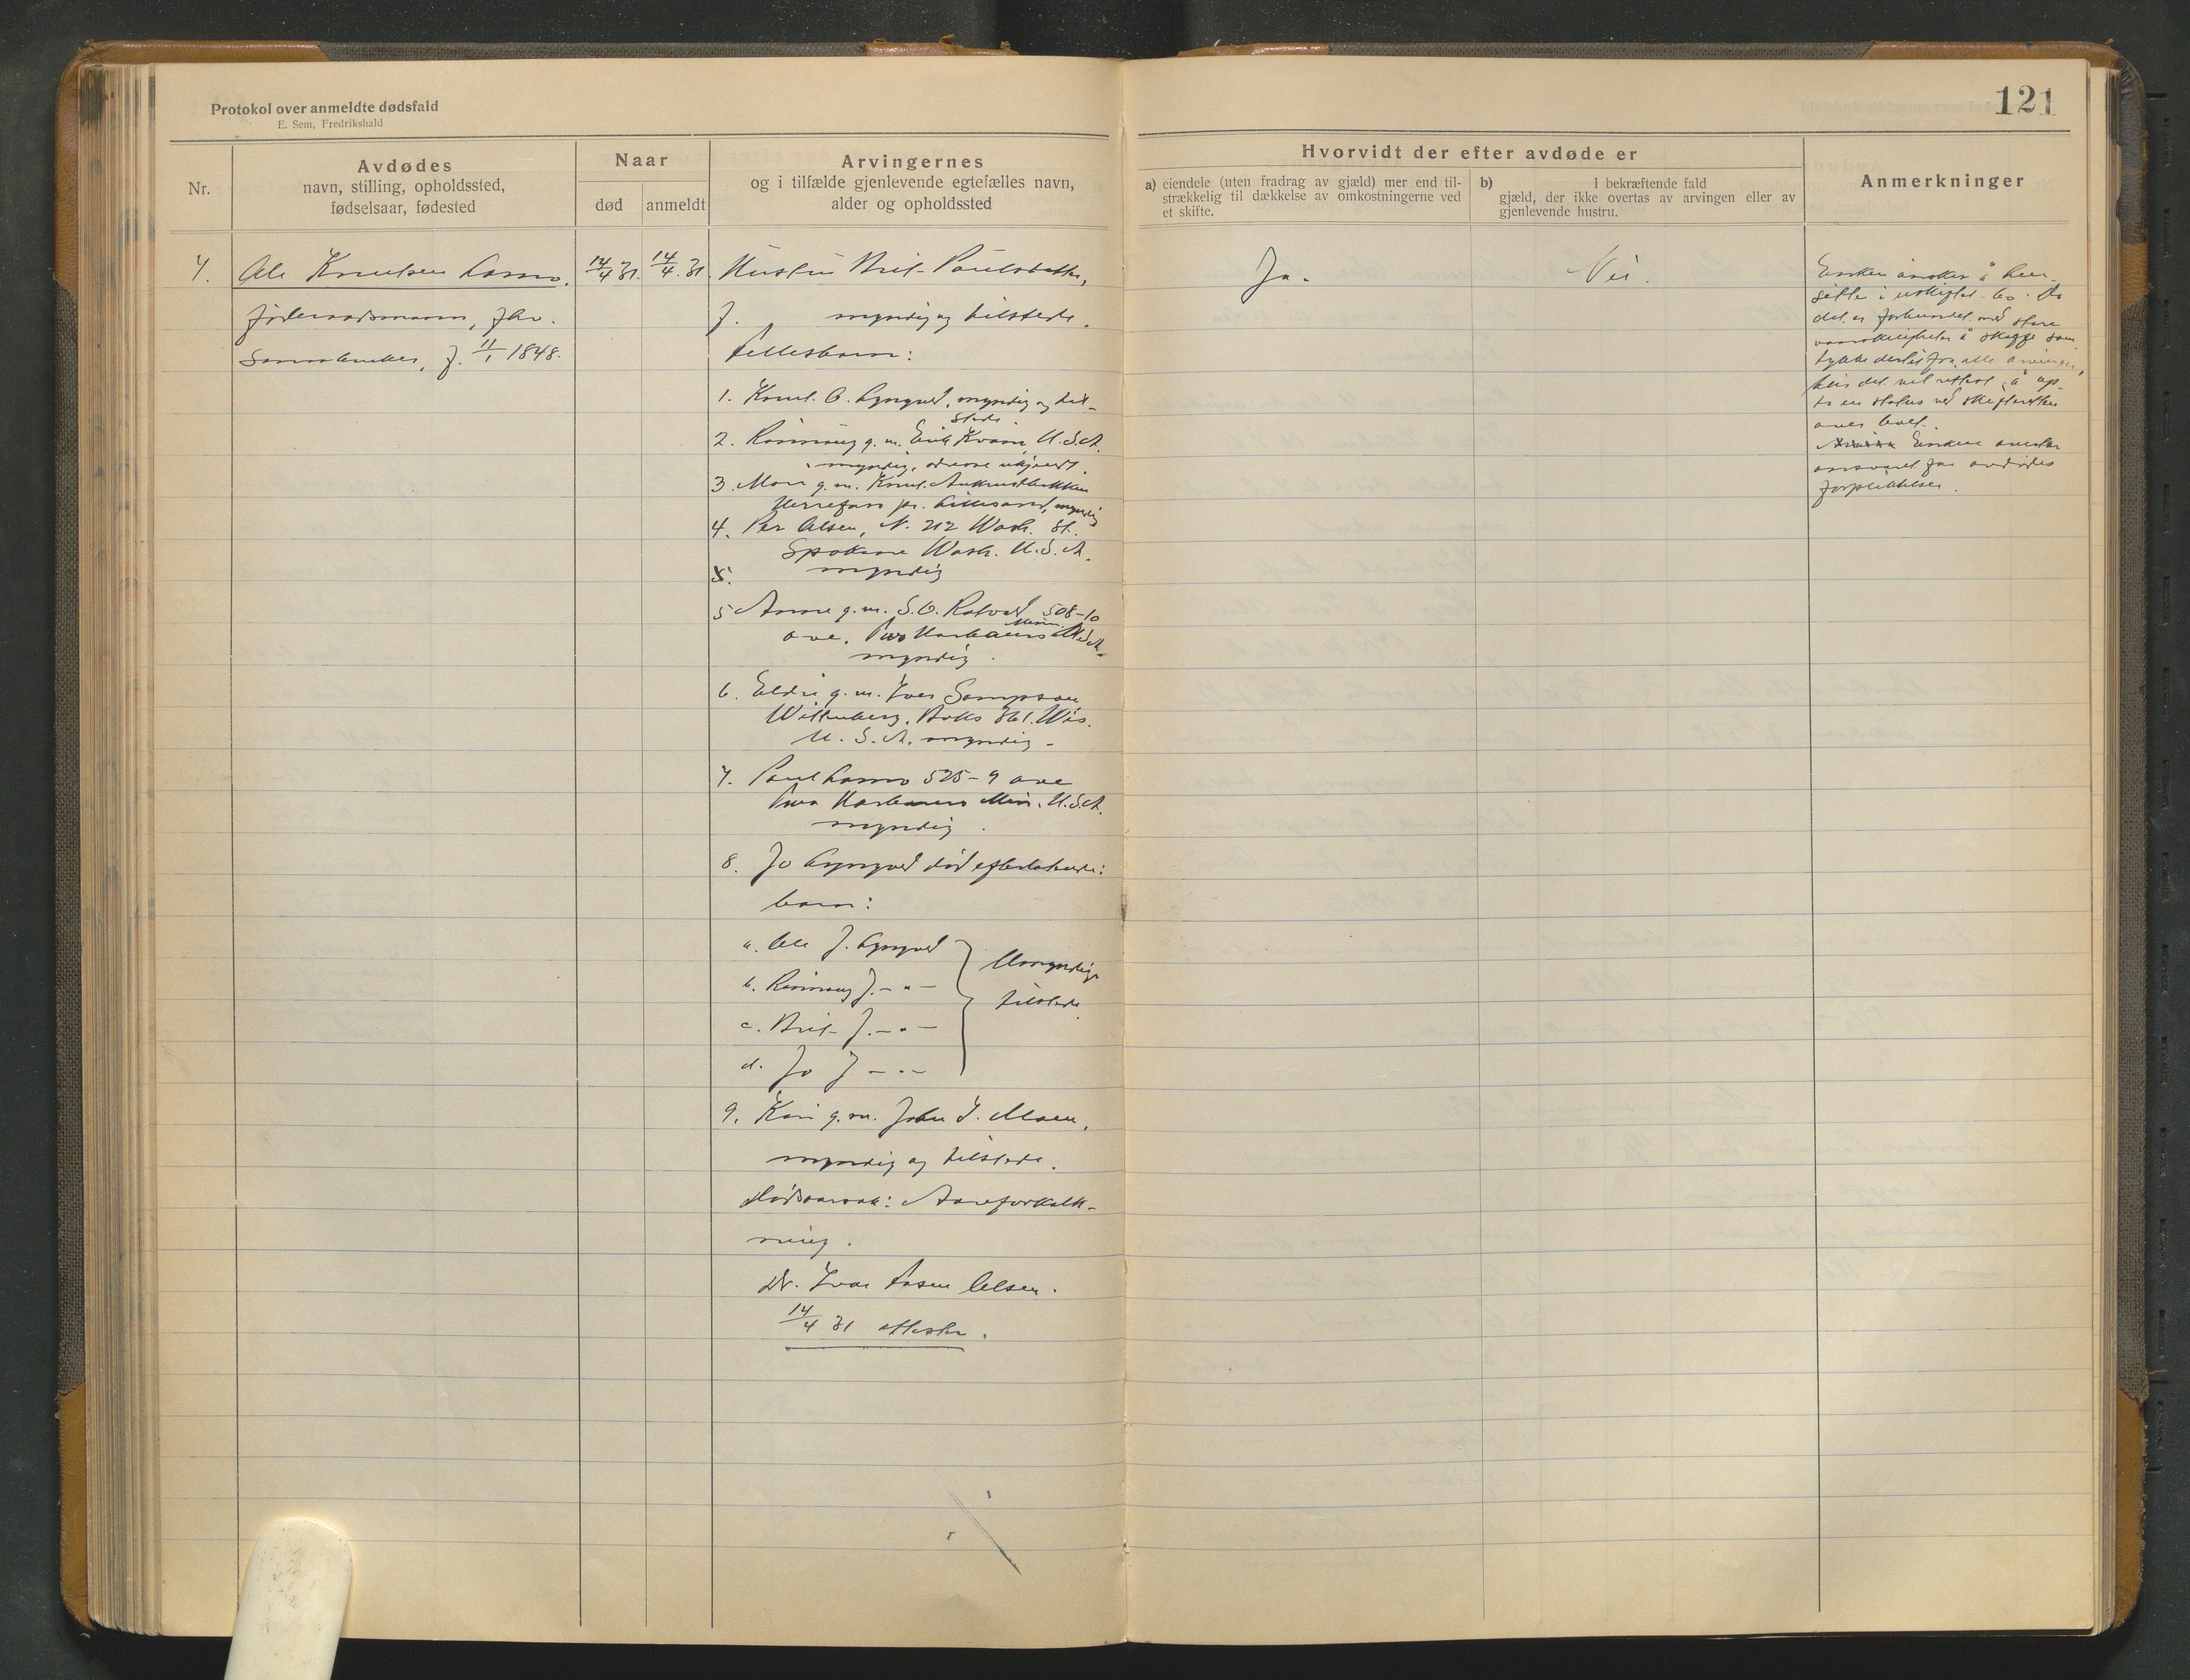 Protokol over anmeldte dødsfald
E. Sem, Fredrikshald
121
Nr.
Avdødes
navn, stilling, opholdssted,
fødselsaar, fødested
Naar
død
anmeldt
Arvingernes
og i tilfælde gjenlevende egtefælles navn,
alder og opholdssted
Hvorvidt der efter avdøde er
a) eiendele (uten fradrag av gjæld) mer end til-
strækkelig til dækkelse av omkostningerne ved
et skifte.
b) I bekræftende fald
gjæld, der ikke overtas av arvingen eller av
gjenlevende hustru.
Anmerkninger
7.
Ole Knutsen Lasmo,
føderaadsmann, fhv.
f. 11/1 1848.
14/4 31.
14/4. 31.
Hustru Brit Paulsdatter,
f. myndig og tilstede.
Fellesbarn:
1. Knut O. Lyngved, myndig og til-
stede
2. Rønnaug g. m. Erik Kvam, U.S.A.
myndig, adresse ukjendt.
3. Mari g. m. Knut
Herrefoss pr. Lillesand, myndig
4. Per Olsen, N. 212 Wash. St.
Spokane Wash. U.S.A.
myndig
5 Anne g. m. S. O. Rotvold 508-10
ave. Two Harbours Minn. U.S.A.
myndig.
6. Eldri g. m. Iver Sampson
Wittenberg, Boks 361. Wis.
U. S. A. myndig -
7. Paul Lasmo 525-9 ave
Two Harbours Min. U.S.A.
myndig.
8. Jo Lyngved død efterlatende:
barn:
a. Ole J. Lyngved
b. Rønnaug J. - " -
c. Brit J. - " -
d. Jo J - " -
Umyndige
tilstede.
9. Kari g. m. John I. Moen,
myndig og tilstede.
Dødsaarsak: Aareforkalk-
ning.
Dr. Ivar Aasen Olsen.
14/4 31 attester.
Ja.
Nei.
Enken ønsker å hen-
sitte i uskiftet bo. Da
det er forbundet med store
vanskeligheter å skaffe sam-
tykke dertil fra alle arvinger,
blir det vel rettest å op-
ta en status ved skifteretten
over boet.
Enken overtar
ansvaret for avdødes
forpliktelser.